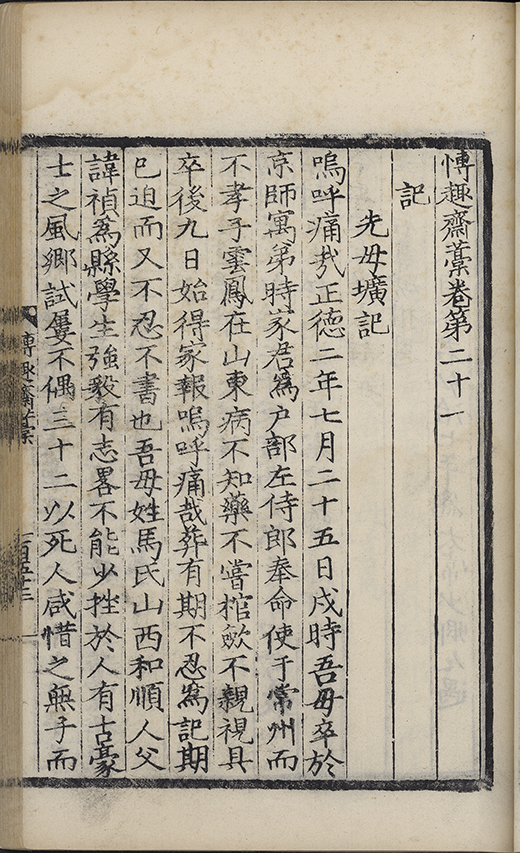 博趣齋藁卷第二十一
記
先母壙記
嗚呼痛哉正德二年七月二十五日戌時吾母卒於
京師寓第時家君爲户部左侍郎奉命使于常州而
不孝子雲鳳在山東病不知藥不嘗棺歛不親視具
卒後九日始得家報嗚呼痛哉葬有期不忍寫記期
已迫而又不忍不書也吾母姓馬氏山西和順人父
諱禎爲縣學生強毅有志畧不能少挫於人有古豪
士之風鄉試屢不偶三十二以死人咸惜之無子而
博趣齋藁